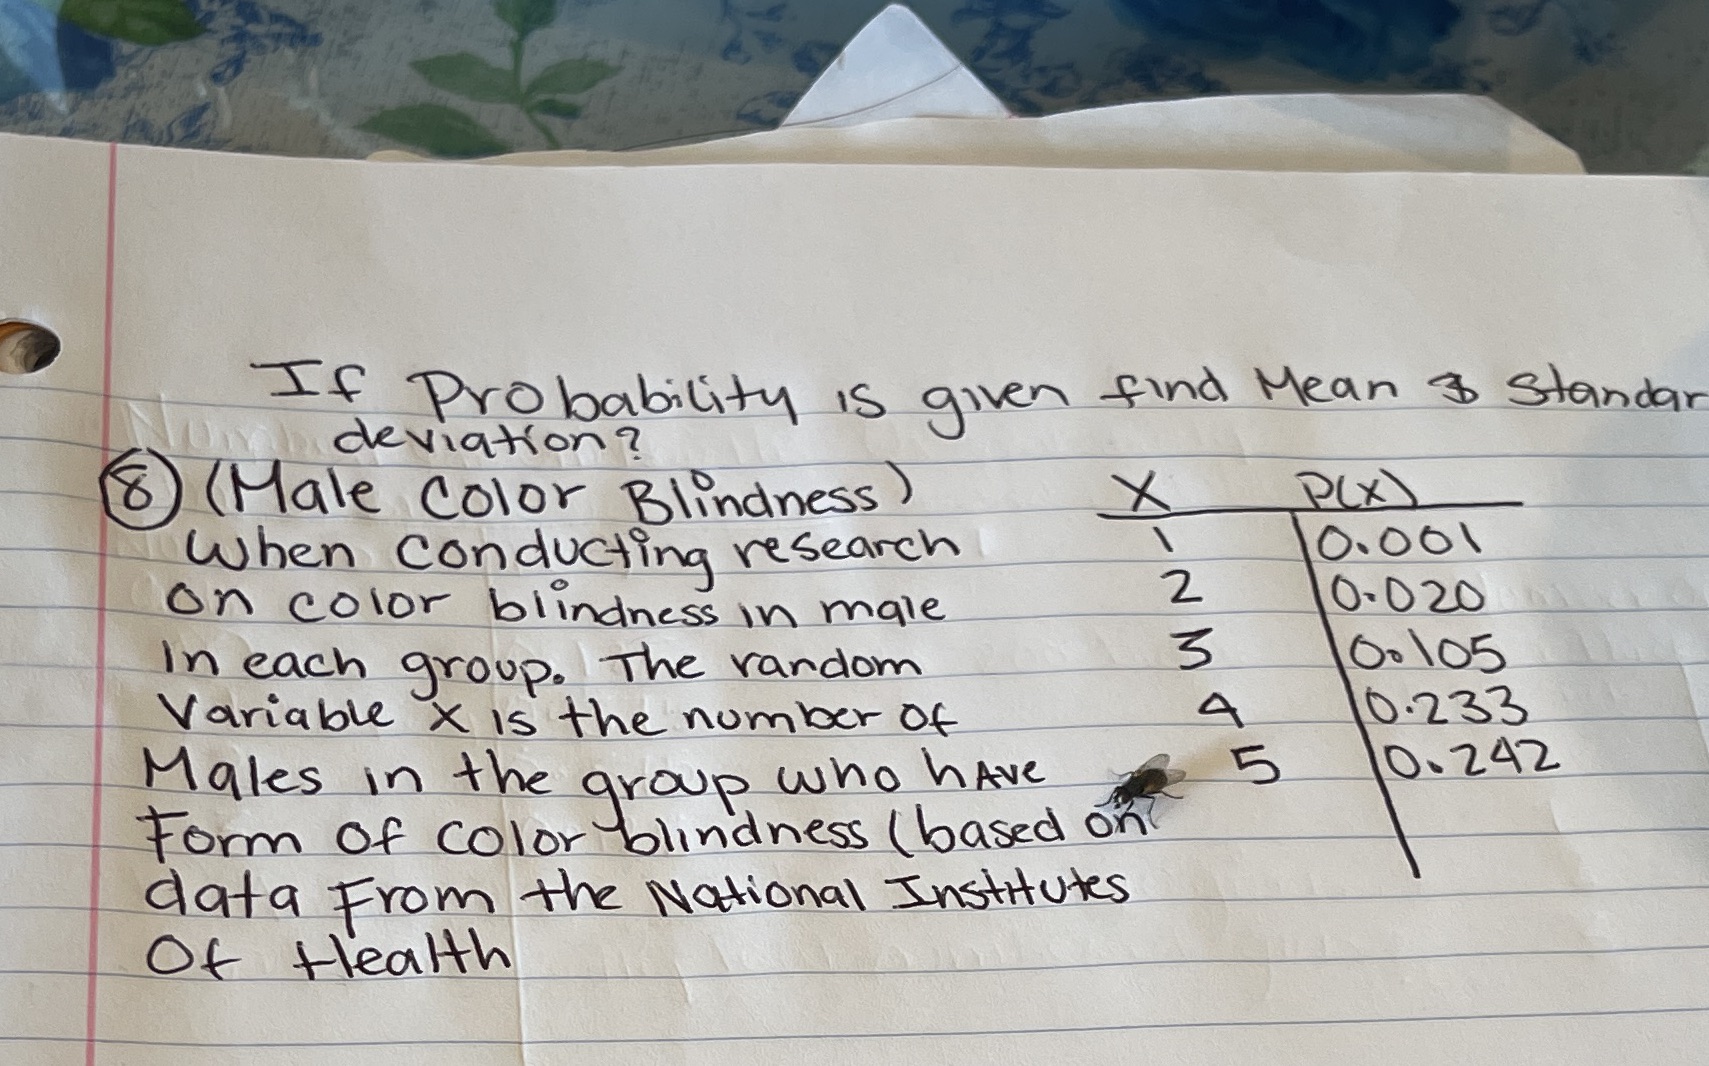 If Probability is given find Mean & Standar
deviation?
⑧ (Male Color Blindness)
When conducting research
on color blindness in male
in each group. The random
Variable x is the number of
Males in the group who have
Form of color blindness (based on
data From the National Institutes
Of Health
X P(X)
1 0.001
2 0.020
3 0.105
4 0.233
5 0.242